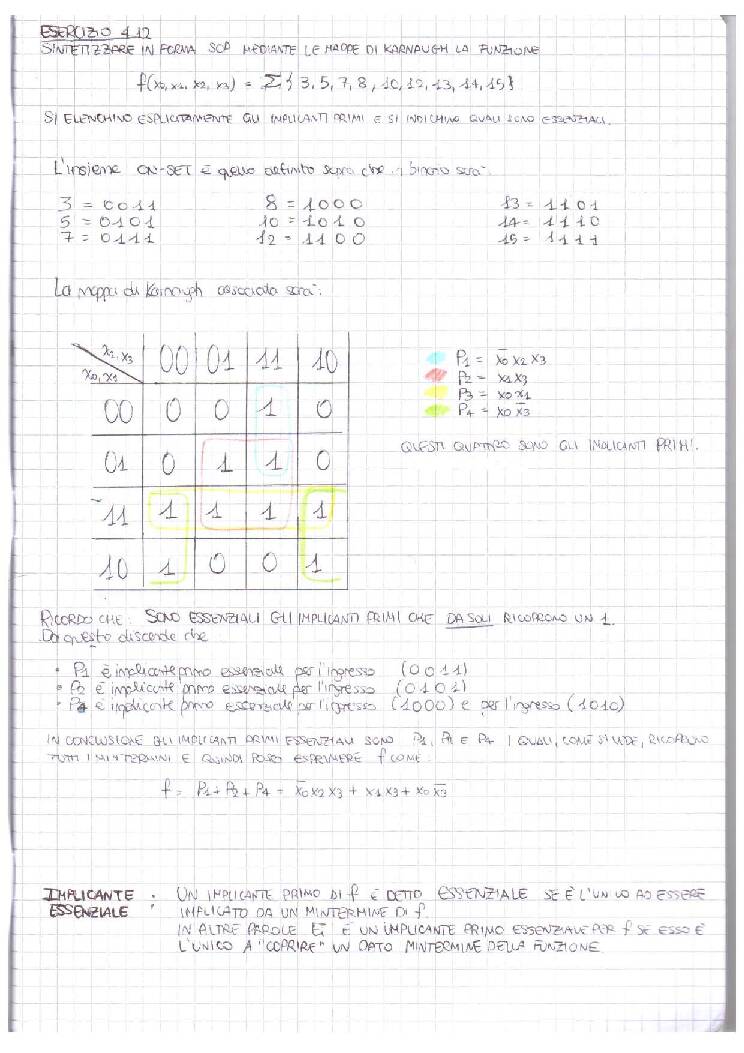 ESERCIZIO 4.12
SINTETIZZARE IN FORMA SOP MEDIANTE LE MAPPE DI KARNAUGH LA FUNZIONE
f(x0, x1, x2, x3) = Σ{ 3, 5, 7, 8, 10, 12, 13, 14, 15}
SI ELENCHINO ESPLICITAMENTE GLI IMPLICANTI PRIMI E SI INDICHINO QUALI SONO ESSENZIALI.
L'insieme ON-SET è quello definito sopra che in binario sarà:
3 = 0011 8 = 1000 13 = 1101
5 = 0101 10 = 1010 14 = 1110
7 = 0111 12 = 1100 15 = 1111
La mappa di Karnaugh associata sarà:
x2, x3 00 01 11 10
x0, x1
00 0 0 1 0
01 0 1 1 0
11 1 1 1 1
10 1 0 0 1
P1 = x̄0 x2 x3
P2 = x1x3
P3 = x0x1
P4 = x0 x̄3
QUESTI QUATTRO SONO GLI IMPLICANTI PRIMI.
RICORDO CHE: SONO ESSENZIALI GLI IMPLICANTI PRIMI CHE DA SOLI RICOPRONO UN 1.
Da questo discende che
• P1 è implicante primo essenziale per l'ingresso (0011)
• P2 è implicante primo essenziale per l'ingresso (0101)
• P4 è implicante primo essenziale per l'ingresso (1000) e per l'ingresso (1010)
IN CONCLUSIONE GLI IMPLICANTI PRIMI ESSENZIALI SONO P1, P2 E P4 I QUALI, COME SI VEDE, RICOPRONO
TUTTI I MINTERMINI E QUINDI POSSO ESPRIMERE f COME:
f = P1 + P2 + P4 = x̄0 x2 x3 + x1 x3 + x0 x̄3
IMPLICANTE : UN IMPLICANTE PRIMO DI f È DETTO ESSENZIALE SE È L'UNICO AD ESSERE
ESSENZIALE IMPLICATO DA UN MINTERMINE DI f.
IN ALTRE PAROLE È UN IMPLICANTE PRIMO ESSENZIALE PER f SE ESSO È
L'UNICO A "COPRIRE" UN DATO MINTERMINE DELLA FUNZIONE